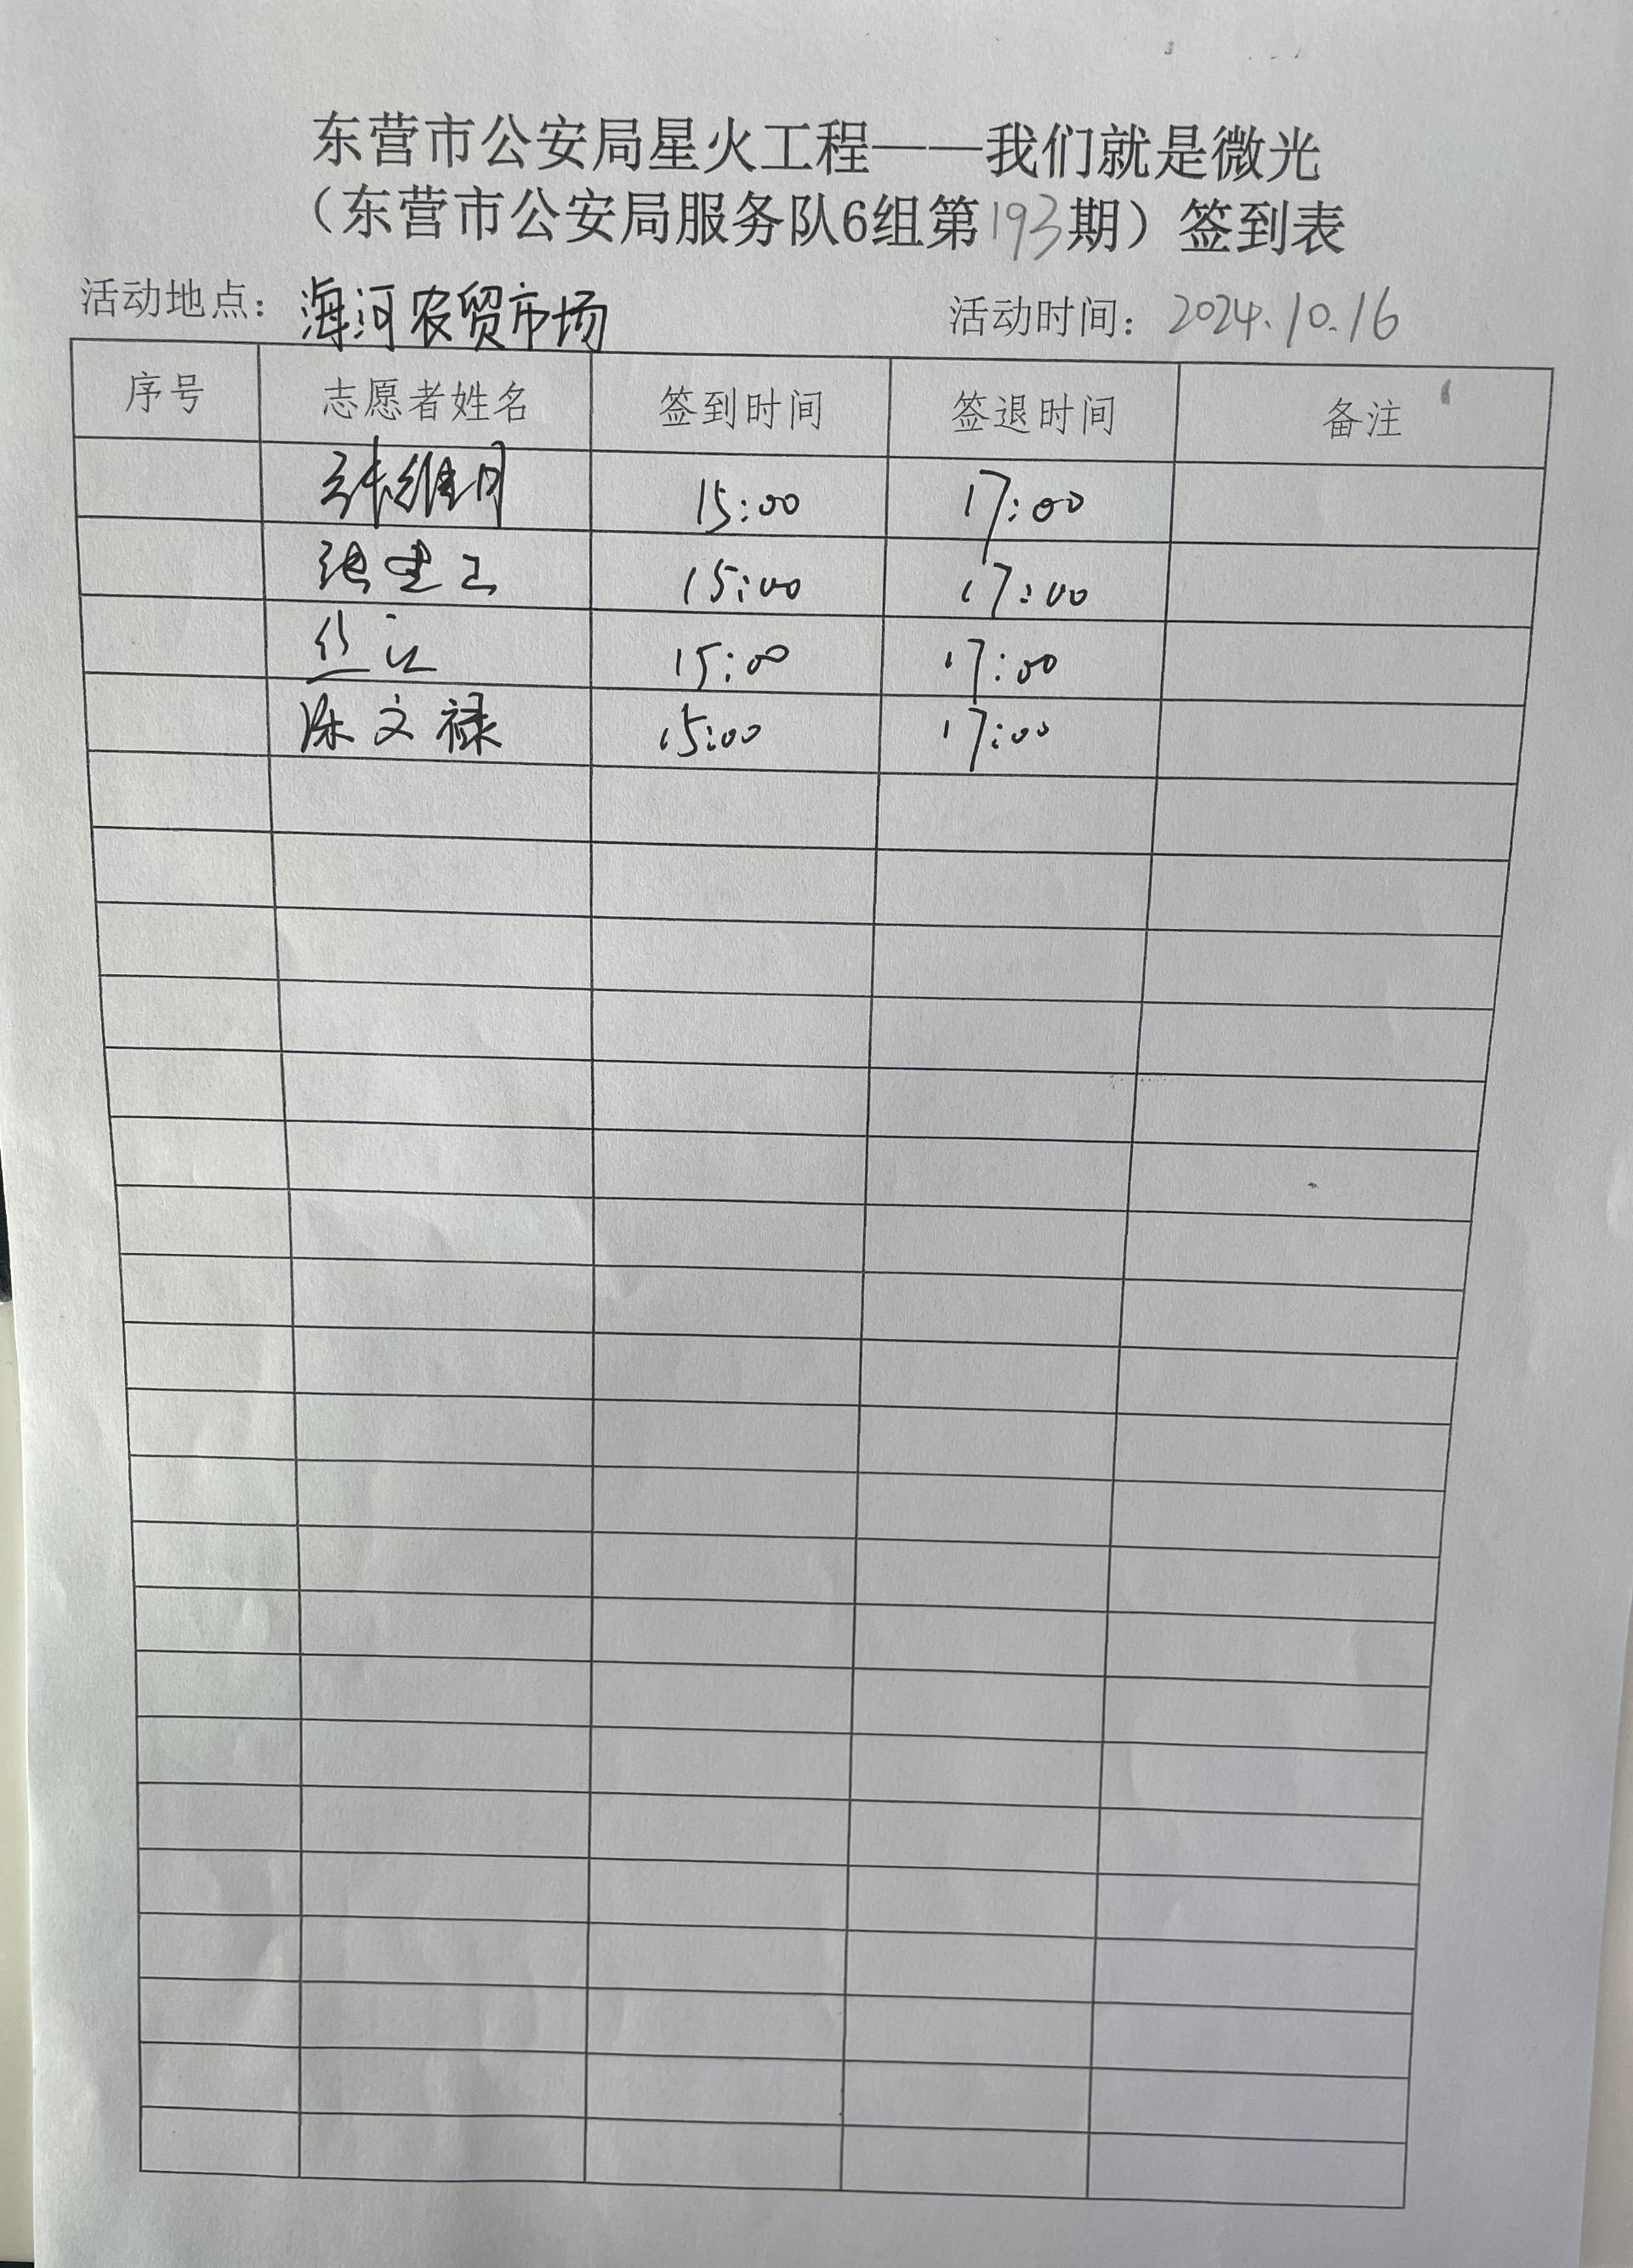 东营市公安局星火工程——我们就是微光
（东营市公安局服务队6组第193期）签到表
活动地点：海河农贸市场 活动时间：2024.10.16
序号 志愿者姓名 签到时间 签退时间 备注
15:00 17:00
15:00 17:00
15:00 17:00
陈文禄 15:00 17:00